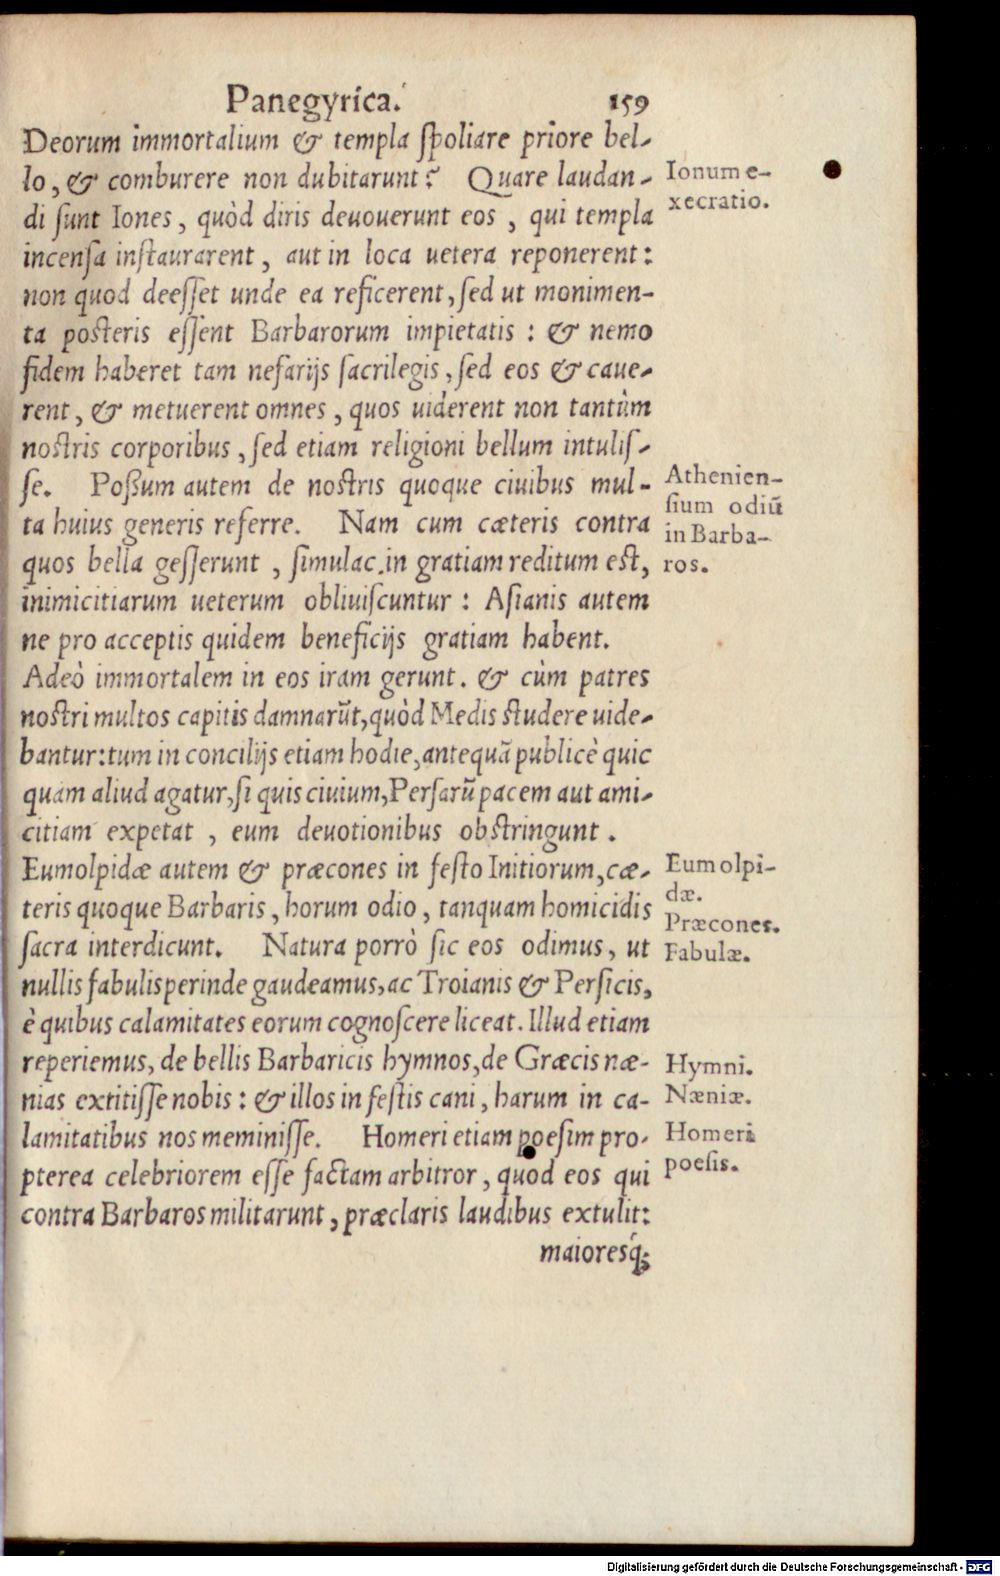 Panegyrica. 159
Deorum immortalium & templa ſpoliare priore bel-
lo, & comburere non dubitarunt? Quare laudan-
di ſunt Iones, quòd diris deuouerunt eos, qui templa
incenſa inſtaurarent, aut in loca uetera reponerent:
non quod deeſſet unde ea reficerent, ſed ut monimen-
ta poſteris eſſent Barbarorum impietatis: & nemo
fidem haberet tam nefarijs ſacrilegis, ſed eos & caue-
rent, & metuerent omnes, quos uiderent non tantùm
noſtris corporibus, ſed etiam religioni bellum intuliſ-
ſe. Poßum autem de noſtris quoque ciuibus mul-
ta huius generis referre. Nam cum cæteris contra
quos bella geſſerunt, ſimulac in gratiam reditum eſt,
inimicitiarum ueterum obliuiſcuntur: Aſianis autem
ne pro acceptis quidem beneficijs gratiam habent.
Adeò immortalem in eos iram gerunt. & cùm patres
noſtri multos capitis damnarūt, quòd Medis ſtudere uide-
bantur: tum in concilijs etiam hodie, antequã publicè quic
quam aliud agatur, ſi quis ciuium, Perſarū pacem aut ami-
citiam expetat, eum deuotionibus obſtringunt.
Eumolpidæ autem & præcones in feſto Initiorum, cæ-
teris quoque Barbaris, horum odio, tanquam homicidis
ſacra interdicunt. Natura porrò ſic eos odimus, ut
nullis fabulis perinde gaudeamus, ac Troianis & Perſicis,
è quibus calamitates eorum cognoſcere liceat. Illud etiam
reperiemus, de bellis Barbaricis hymnos, de Græcis næ-
nias extitiſſe nobis: & illos in feſtis cani, harum in ca-
lamitatibus nos meminiſſe. Homeri etiam poeſim pro-
pterea celebriorem eſſe factam arbitror, quod eos qui
contra Barbaros militarunt, præclaris laudibus extulit:
maioresq́;
Ionum e-
xecratio.
Athenien-
ſium odiū
in Barba-
ros.
Eumolpi-
dæ.
Præcones.
Fabulæ.
Hymni.
Næniæ.
Homeri
poeſis.
Digitalisierung gefördert durch die Deutsche Forschungsgemeinschaft - DFG